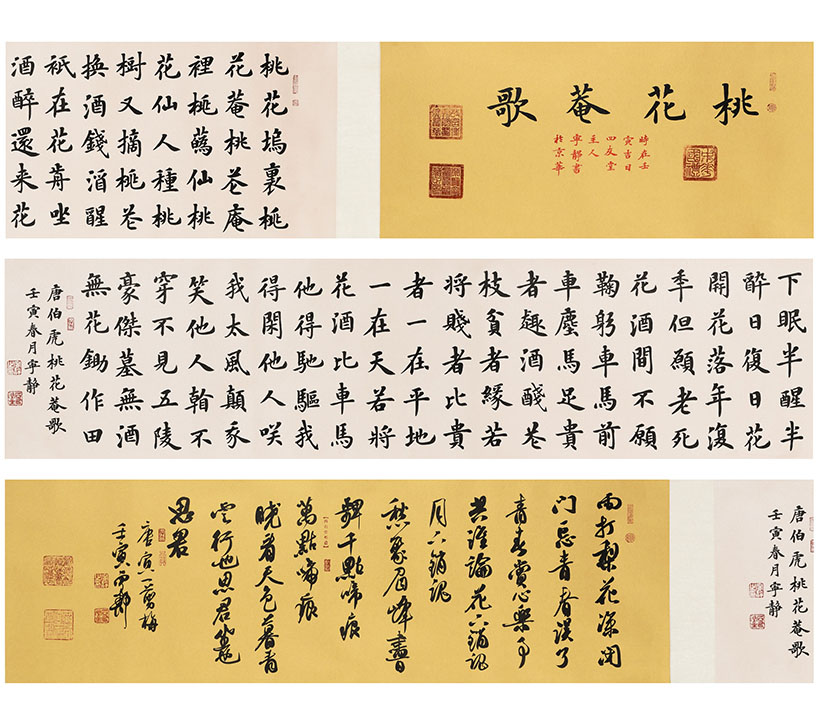 桃花菴歌
時在壬
寅吉日
四友堂
主人
寧靜書
於京華
桃花塢裏桃
花菴桃花庵
裡桃蘤仙桃
花仙人種桃
樹又摘桃花
換酒錢酒醒
衹在花前坐
酒醉還来花
下眠半醒半
醉日復日花
開花落年復
年但願老死
花酒間不願
鞠躬車馬前
車塵馬足貴
者趣酒醆花
枝貧者緣若
將賤者比貴
者一在平地
一在天若將
花酒比車馬
他得馳驅我
得閑他人咲
我太風顛我
笑他人看不
穿不見五陵
豪傑墓無酒
無花鋤作田
唐伯虎桃花菴歌
壬寅春月寧靜
唐伯虎桃花菴歌
壬寅春月寧靜
雨打梨花深閉
門忘青春誤了
青春賞心樂事
共誰論花下銷魂
月下銷魂
愁聚眉峰盡日
顰千點啼痕
萬點啼痕
曉看天色暮看
雲行也思君坐也
思君
唐寅一剪梅
壬寅寧靜